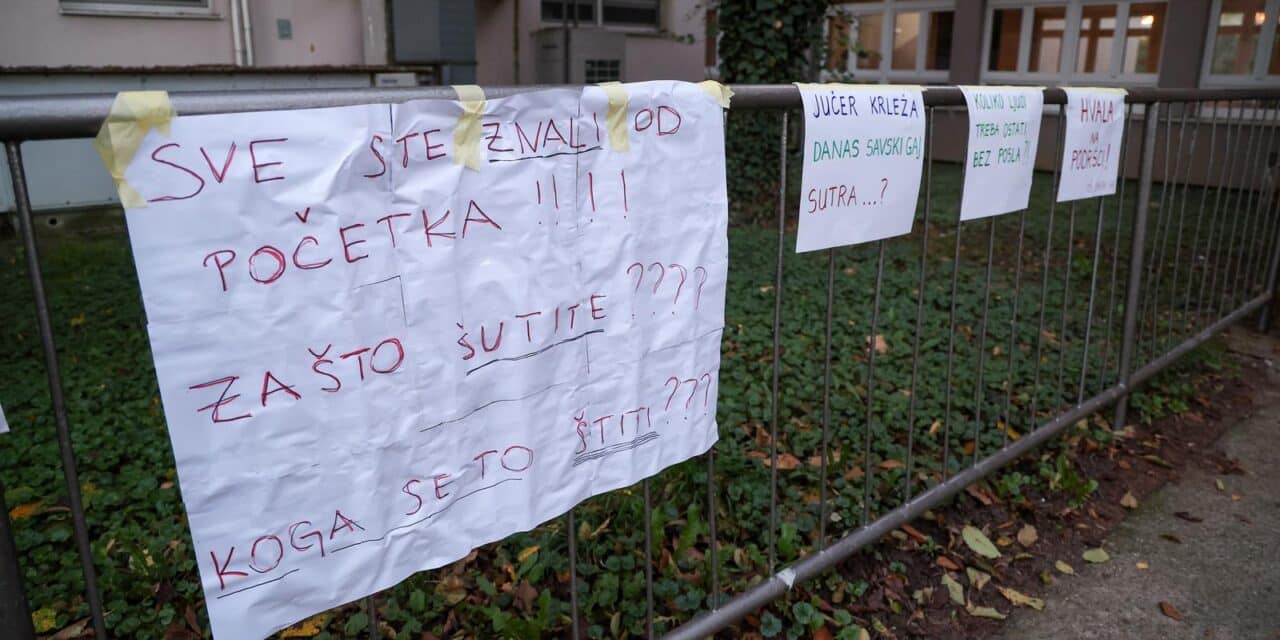 SVE STE ZNALI OD
POČETKA !!!!
ZAŠTO ŠUTITE ????
KOGA SE TO ŠTITI ???
JUČER KRLEŽA
DANAS SAVSKI GAJ
SUTRA...?
KOLIKO LJUDI
TREBA OSTATI
BEZ POSLA?!
HVALA
NA
PODRŠCI!